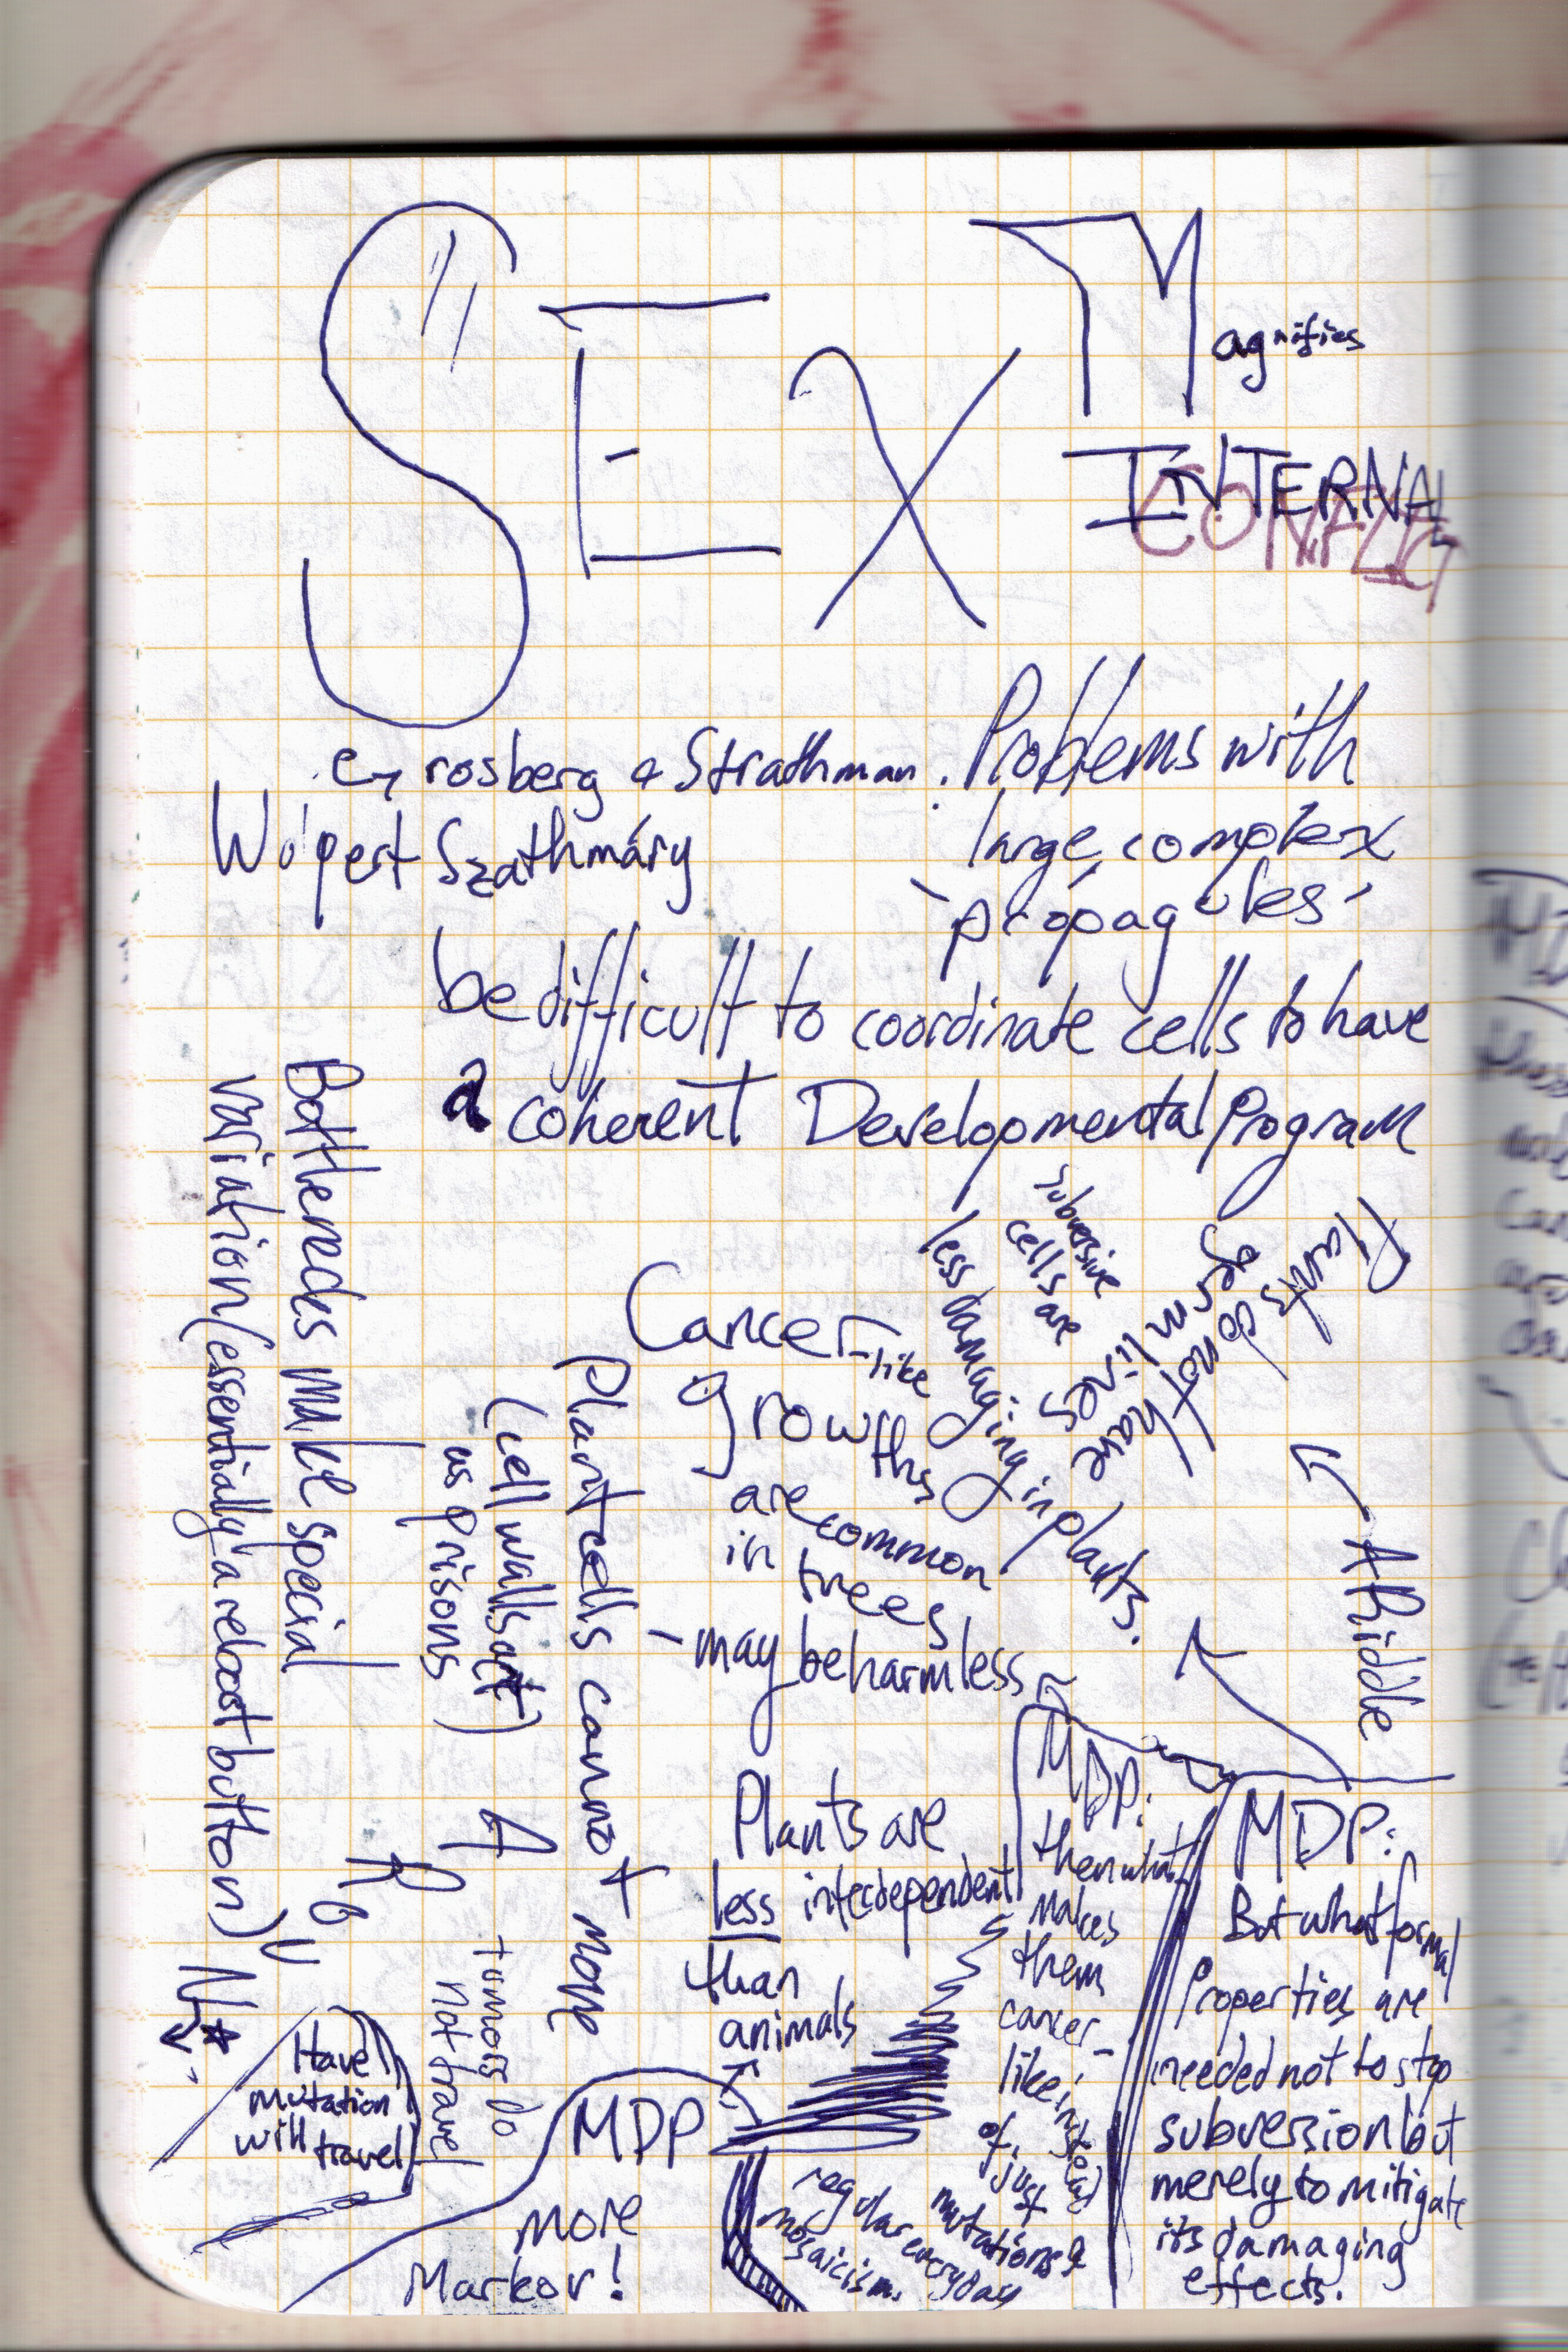 SEX Magnifies
INTERNAL
CONFLICT
Grosberg & Strathman. Problems with
Wolpert Szathmáry large, complex
'propagules'
be difficult to coordinate cells to have
a coherent Developmental Program
Bottlenecks make special
variation (essentially a reboot button)
subversive
cells are
less damaging in plants.
Plants do not have
germ lines
A Riddle
Cancer-like
growths
are common
in trees
- may be harmless
Plant cells cannot move
(cell walls act
as prisons)
tumors do
not travel
Have
mutation
will travel
Plants are
less interdependent
than
animals
MDP
more
Markov!
MDP:
then what
makes
them
cancer-
like instead
of just
regular everyday
mutations &
mosaicism.
MDP:
But what formal
Properties are
needed not to stop
subversion but
merely to mitigate
its damaging
effects.